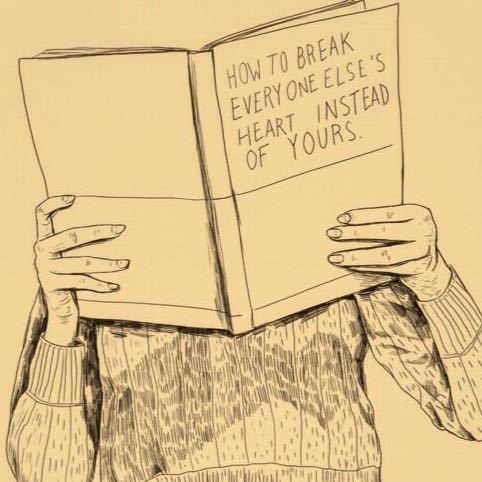 HOW TO BREAK
EVERYONE ELSE'S
HEART INSTEAD
OF YOURS.